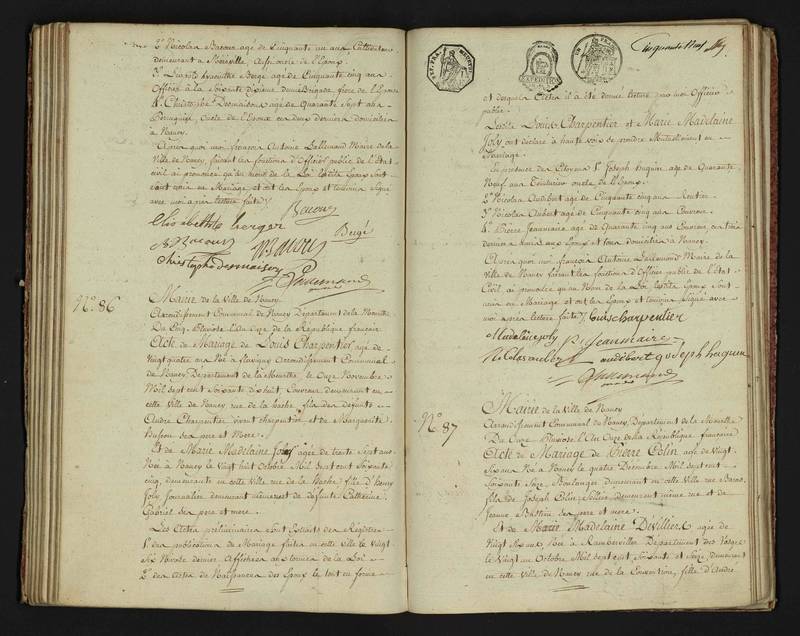 2° Nicolas Bacour agé de Cinquante un ans Cultivateur
demeurant a Méréville, Ami oncle de l'Epouse
3° hyacinthe Bergé agé de Cinquante cinq ans
Officier à la Soixante dixieme demie Brigade, frere de l'Epouse
4° Christophe Desmaison agé de Quarante Sept ans
Perruquier, oncle de l'Epoux ces deux derniers domiciliés
à Nancy.
Après quoi moi françois Antoine Lallemand Maire de la
Ville de Nancy, faisant les fonctions d'Officier public de l'Etat
civil ai prononcé qu'au nom de la Loi lesdits Epoux sont
unis en Mariage et ont les Epoux et temoins Signé
avec moi après lecture faite
Elisabethe berger Bacour
Bergé
N Bacour
Christophe desmaison
Lallemand
N°. 86
Mairie de la Ville de Nancy
Arrondissement Communal de Nancy Département de la Meurthe
Du Cinq Pluviose l'An Onze de la République française
Acte de Mariage de Louis Charpentier agé de
Vingt quatre ans Né a flavigny Arrondissement Communal
de Nancy Département de la Meurthe, le Onze Novembre
Mil sept cent soixante dix huit, Couvreur demeurant en
cette Ville de Nancy, rue de la hache, fils des défunts
Claude Charpentier vivant charpentier et de Marguerite
Busson ses pere et Mere.
Et de Marie Madelaine Joly agée de trente Sept ans
Née a Nancy le Vingt huit Octobre Mil Sept cent Soixante
cinq, demeurante en cette Ville rue de la hache, fille d'
Joly Journalier demeurant et de défunte Catherine
Gabriel ses pere et mere.
Les Actes préliminaires sont Extraits des Régistres
1° des publications de Mariage faites en cette Ville le Vingt
Six Nivose dernier Affichés aux termes de la Loi
2° des actes de Naissances des Epoux le tout en forme
EXPEDITION
Cinquante neuf
et desquels Actes il a été donné lecture par moi Officier
public
Lesdits Louis Charpentier et Marie Madelaine
Joly ont déclaré à haute voix se prendre Mutuellement en
Mariage.
En présence des Citoyens 1° Joseph huguin agé de Quarante
Neuf ans Teinturier oncle de l'Epoux.
2° Nicolas Audibert agé de Cinquante cinq ans Rentier.
3° Nicolas Aubert agé de Cinquante cinq ans Couvreur.
4° Pierre Jeannaire agé de Quarante cinq ans Couvreur, ces trois
derniers Amis aux Epoux et tous domiciliés à Nancy.
Après quoi moi françois Antoine Lallemand Maire de la
Ville de Nancy faisant les fonctions d'Officier public de l'état
Civil ai prononcé qu'au Nom de la Loi lesdits Epoux sont
unis en Mariage et ont les Epoux et temoins Signé avec
moi après lecture faite Louis charpentier
Madelaine joly P. Jeannaire
Nicolas audibert joseph huguin
Lallemand
N°. 87
Mairie de la Ville de Nancy
Arrondissement Communal de Nancy, Département de la Meurthe
Du Onze Pluviose l'An Onze de la République française
Acte de Mariage de Pierre Colin agé de Vingt
Six ans Né à Nancy le quatre Décembre Mil Sept cent
Soixante Seize, Boulanger demeurant en cette Ville rue
fils de Joseph Colin Sellier demeurant même rue et de
Jeanne Bastien ses pere et mere.
Et de Marie Madelaine Devillier agée de
Vingt Six ans, Née à Rambervillers Département des Vosges
le Vingt un Octobre Mil Sept cent Soixante et Seize, demeurant
en cette Ville de Nancy rue de la Convention, fille d'André